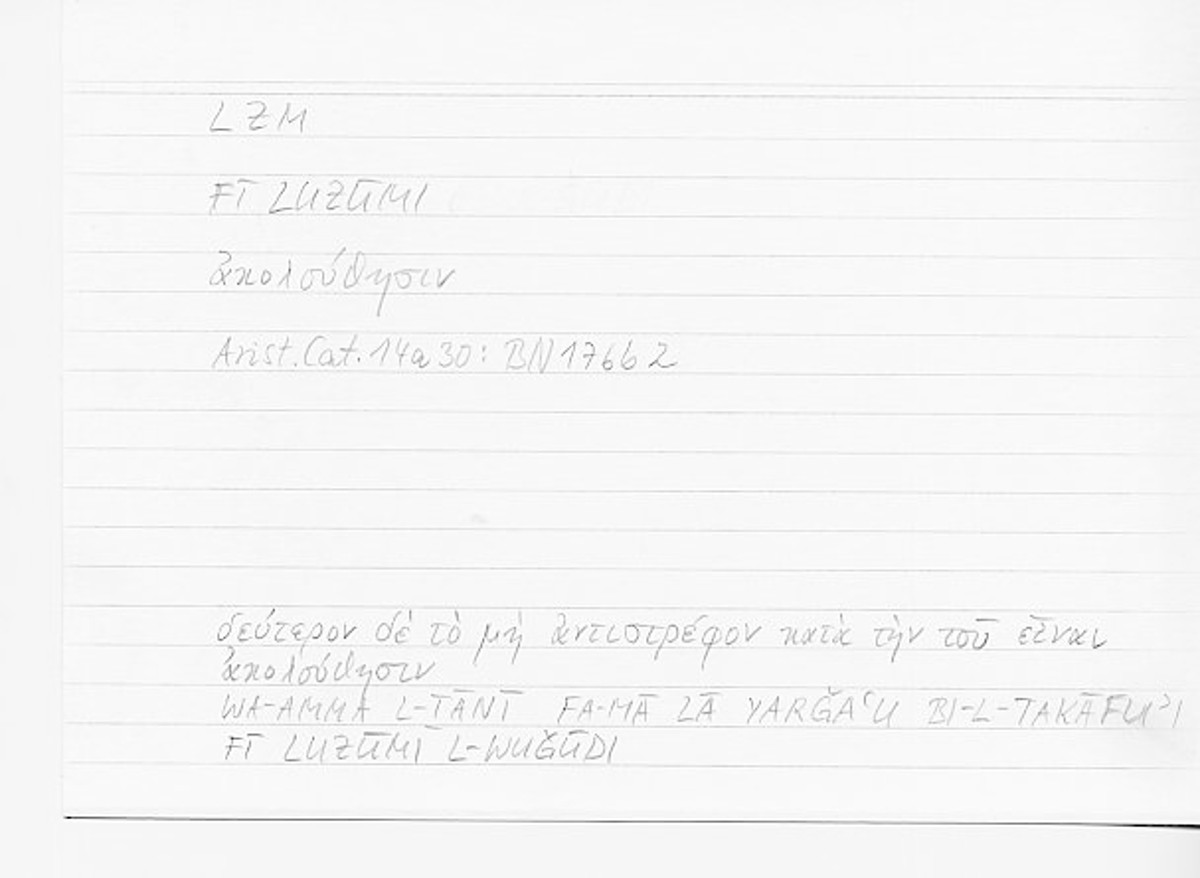 LZM
FĪ LUZŪMI
ἀκολούθησιν
Arist. Cat. 14a30: BN 176b2
δεύτερον δὲ τὸ μὴ ἀντιστρέφον κατὰ τὴν τοῦ εἶναι
ἀκολούθησιν
WA-AMMĀ L-TĀNĪ FA-MĀ LĀ YARǦAʿU BI-L-TAKĀFUʾI
FĪ LUZŪMI L-WUǦŪDI